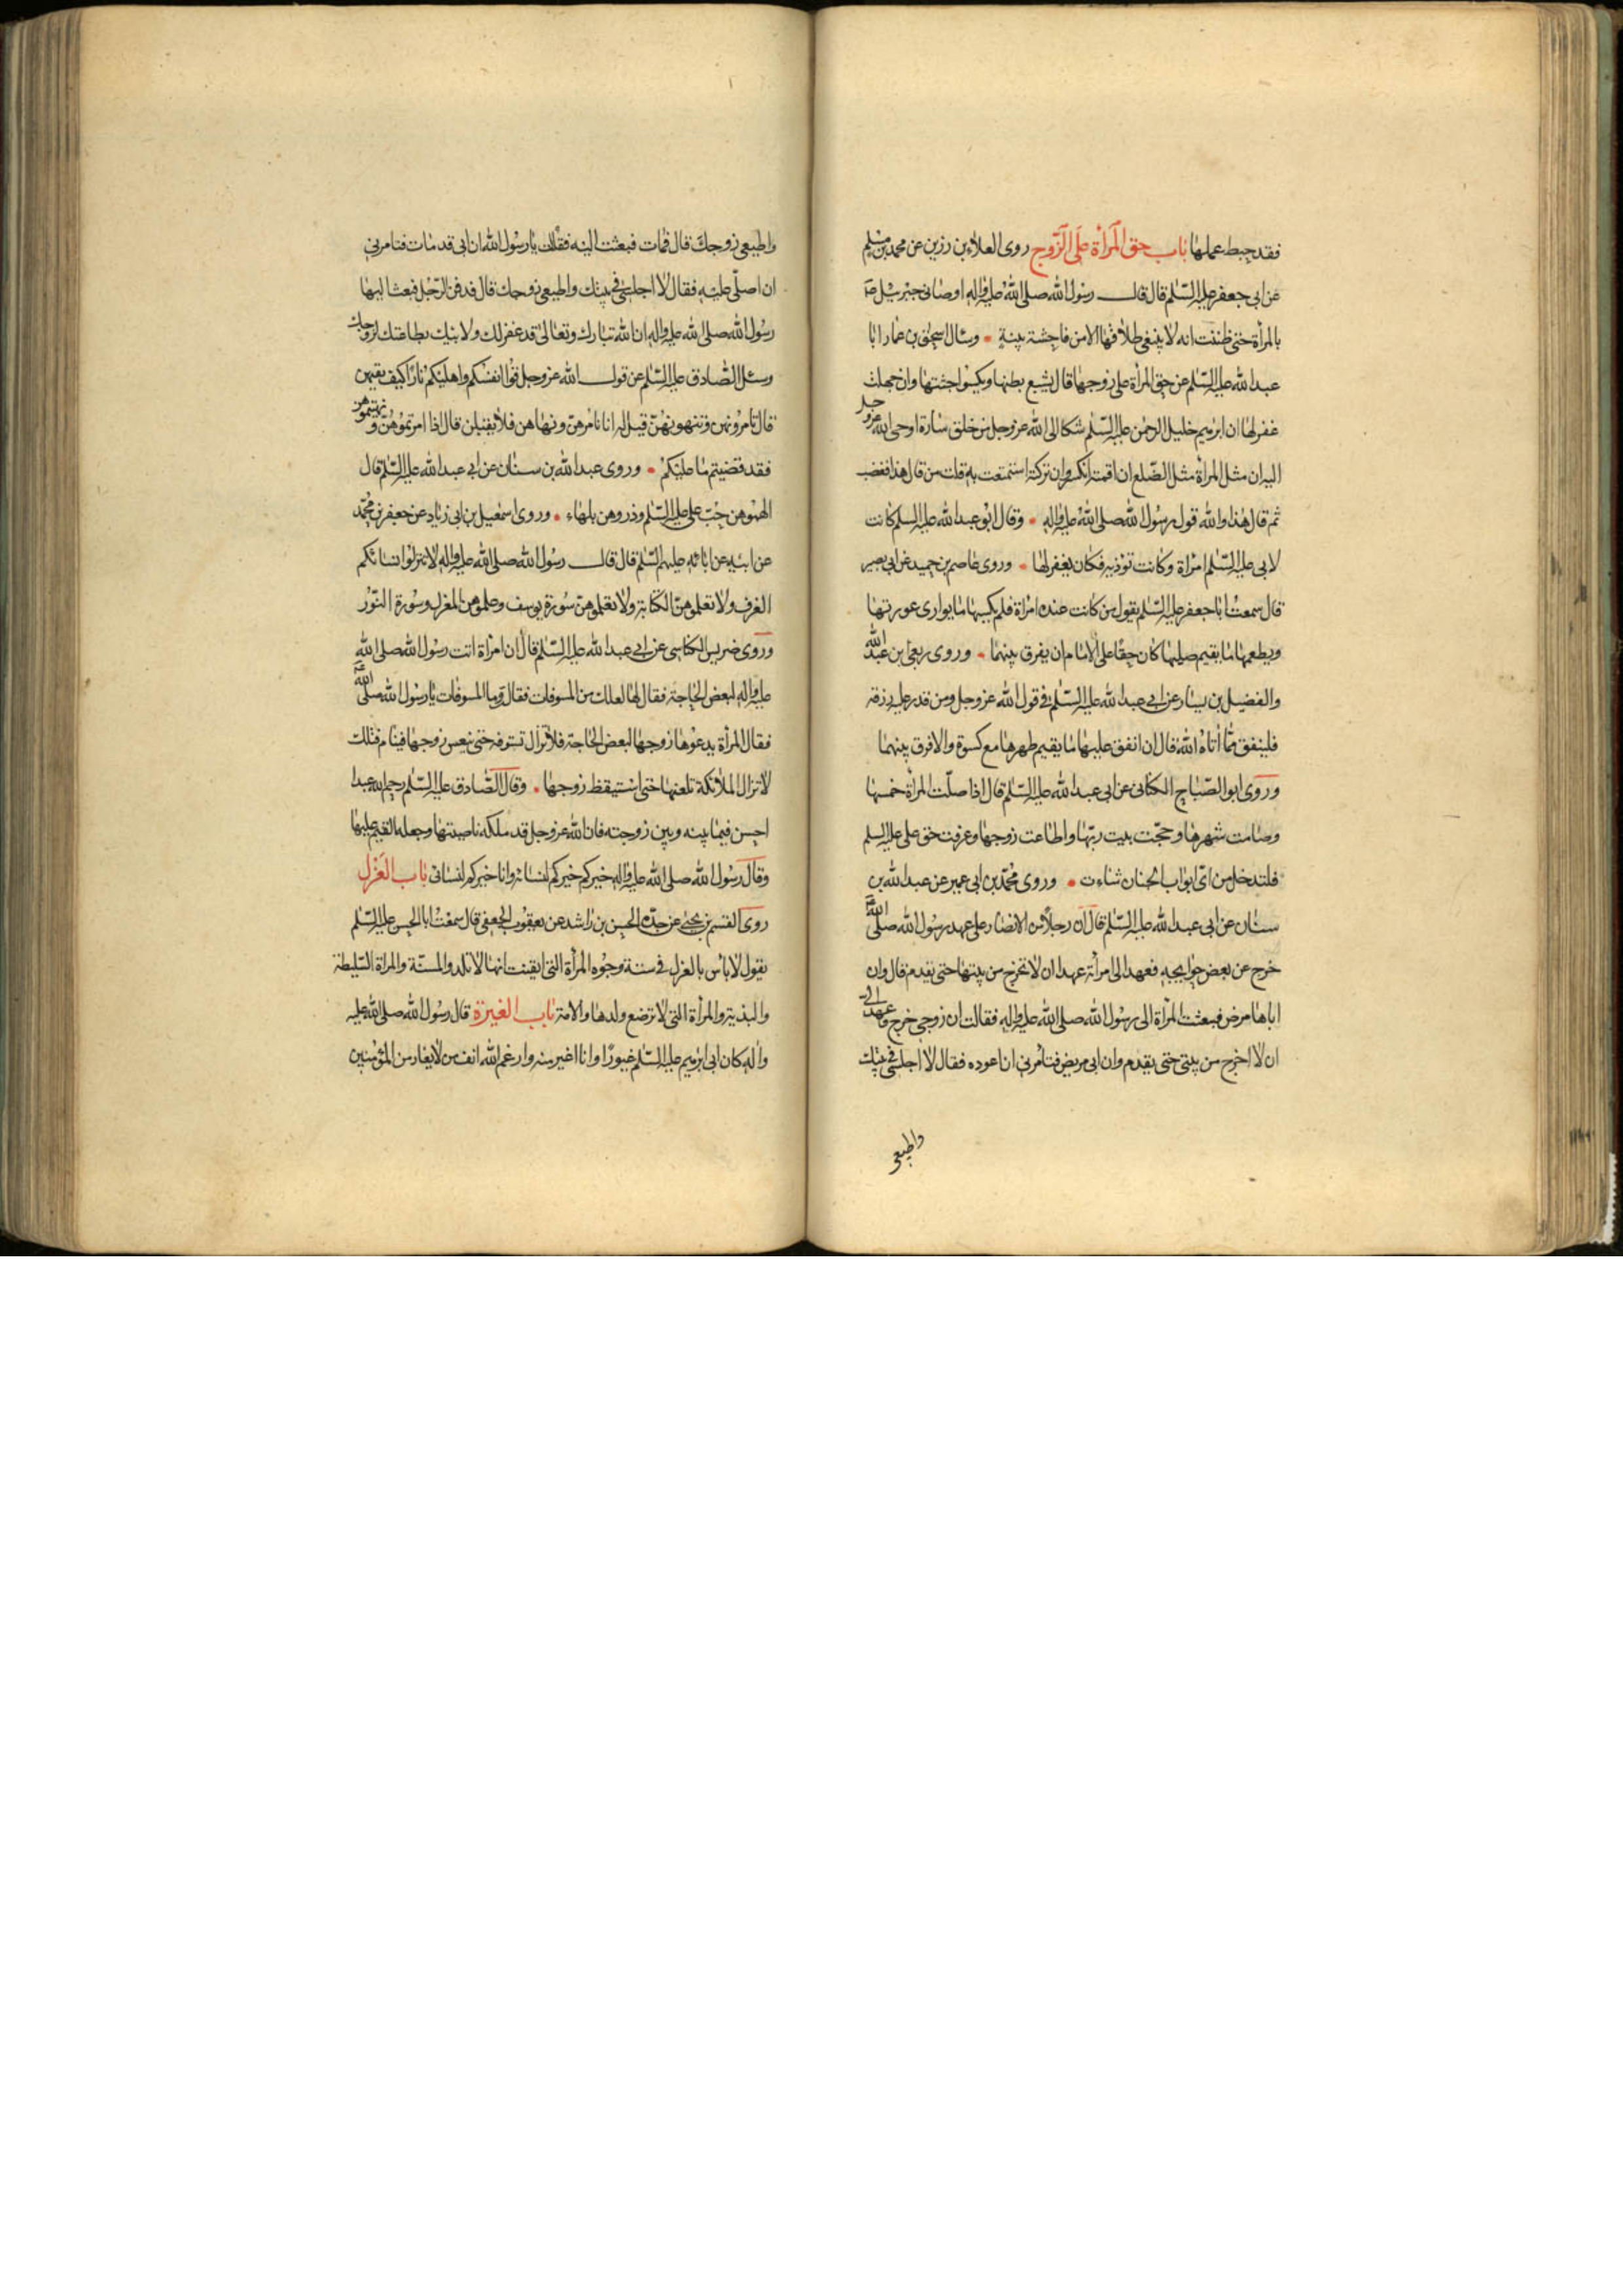 فقد حبط عملها باب حق المرأة على الزوج روى العلاء بن رزين عن محمد بن مسلم
عن ابى جعفر عليه السلم قال قال رسول الله صلى الله عليه واله اوصانى جبرئيل عم
بالمرأة حتى ظننت انه لا ينبغى طلاقها الا من فاحشة بينة وسال اسحق بن عمار ابا
عبد الله عليه السلم عن حق المرأة على زوجها قال يشبع بطنها ويكسوا جثتها وان جهلت
غفر لها ان ابرهيم خليل الرحمن عليه السلم شكا الى الله عز وجل من خلق سارة اوحى الله عز وجل
اليه ان مثل المرأة مثل الضلع ان اقمته انكسر وان تركته استمتعت به قلت من قال هذا فغضب
ثم قال هذا والله قول رسول الله صلى الله عليه واله وقال ابو عبد الله عليه السلم كانت
لابى عليه السلم امرأة وكانت توذيه فكان يغفر لها وروى عاصم بن حميد عن ابى بصير
قال سمعت ابا جعفر عليه السلم يقول من كانت عنده امرأة فلم يكسها ما يوارى عورتها
ويطعمها ما يقيم صلبها كان حقا على الامام ان يفرق بينهما وروى ربعى بن عبد الله
والفضيل بن يسار عن ابى عبد الله عليه السلم فى قول الله عز وجل ومن قدر عليه رزقه
فلينفق مما اتاه الله قال ان انفق عليها ما يقيم ظهرها مع كسوة والا فرق بينهما
وروى ابو الصباح الكنانى عن ابى عبد الله عليه السلم قال اذا صلت المرأة خمسها
وصامت شهرها وحجت بيت ربها واطاعت زوجها وعرفت حق على عليه السلم
فلتدخل من اى ابواب الجنان شاءت وروى محمد بن ابى عمير عن عبد الله بن
سنان عن ابى عبد الله عليه السلم قال ان رجلا من الانصار على عهد رسول الله صلى الله
خرج عن بعض حوايجه فعهد الى امرأته عهدا ان لا تخرج من بيتها حتى يقدم قال وان
اباها مرض فبعثت المرأة الى رسول الله صلى الله عليه واله فقالت ان زوجى خرج وعهد الى
ان لا اخرج من بيتى حتى يقدم وان ابى مريض فتامرنى ان اعوده فقال لا اجلسى فى بيتك
واطيعى
واطيعى زوجك قال فمات فبعثت اليه فقالت يا رسول الله ان ابى قد مات فتامرنى
ان اصلى عليه فقال لا اجلسى فى بيتك واطيعى زوجك قال فدفن الرجل فبعث اليها
رسول الله صلى الله عليه واله ان الله تبارك وتعالى قد غفر لك ولابيك بطاعتك لزوجك
وسئل الصادق عليه السلم عن قول الله عز وجل قوا انفسكم واهليكم نارا كيف نقيهن
قال تامرونهن وتنهونهن قيل له انا نامرهن وننهاهن فلا يقبلن قال اذا امرتموهن ونهيتموهن
فقد قضيتم ما عليكم وروى عبد الله بن سنان عن ابى عبد الله عليه السلم قال
الهموهن حب على عليه السلم وذروهن بلهاء وروى اسمعيل بن ابى زياد عن جعفر بن محمد
عن ابيه عن ابائه عليهم السلم قال قال رسول الله صلى الله عليه واله لا تنزلوا نسائكم
الغرف ولا تعلموهن الكتابة ولا تعلموهن سورة يوسف وعلموهن المغزل وسورة النور
وروى ضريس الكناسى عن ابى عبد الله عليه السلم قال ان امرأة اتت رسول الله صلى الله
عليه واله لبعض الحاجة فقال لها لعلك من المسوفات فقالت وما المسوفات يا رسول الله صلى الله
فقال المرأة يدعوها زوجها لبعض الحاجة فلا تزال تسوفه حتى ينعس زوجها فينام فتلك
لا تزال الملائكة تلعنها حتى استيقظ زوجها وقال الصادق عليه السلم رحم الله عبدا
احسن فيما بينه وبين زوجته فان الله عز وجل قد ملكه ناصيتها وجعله القيم عليها
وقال رسول الله صلى الله عليه واله خيركم خيركم لنسائه وانا خيركم لنسائى باب العزل
روى القسم بن يحيى عن جده الحسن بن راشد عن يعقوب الجعفى قال سمعت ابا الحسن عليه السلم
يقول لا باس بالعزل فى ستة وجوه المرأة التى ايقنت انها لا تلد والمسنة والمرأة السليطة
والبذية والمرأة التى لا ترضع ولدها والامة باب الغيرة قال رسول الله صلى الله عليه
واله كان ابى ابرهيم عليه السلم غيورا وانا اغير منه وارغم الله انف من لا يغار من المؤمنين